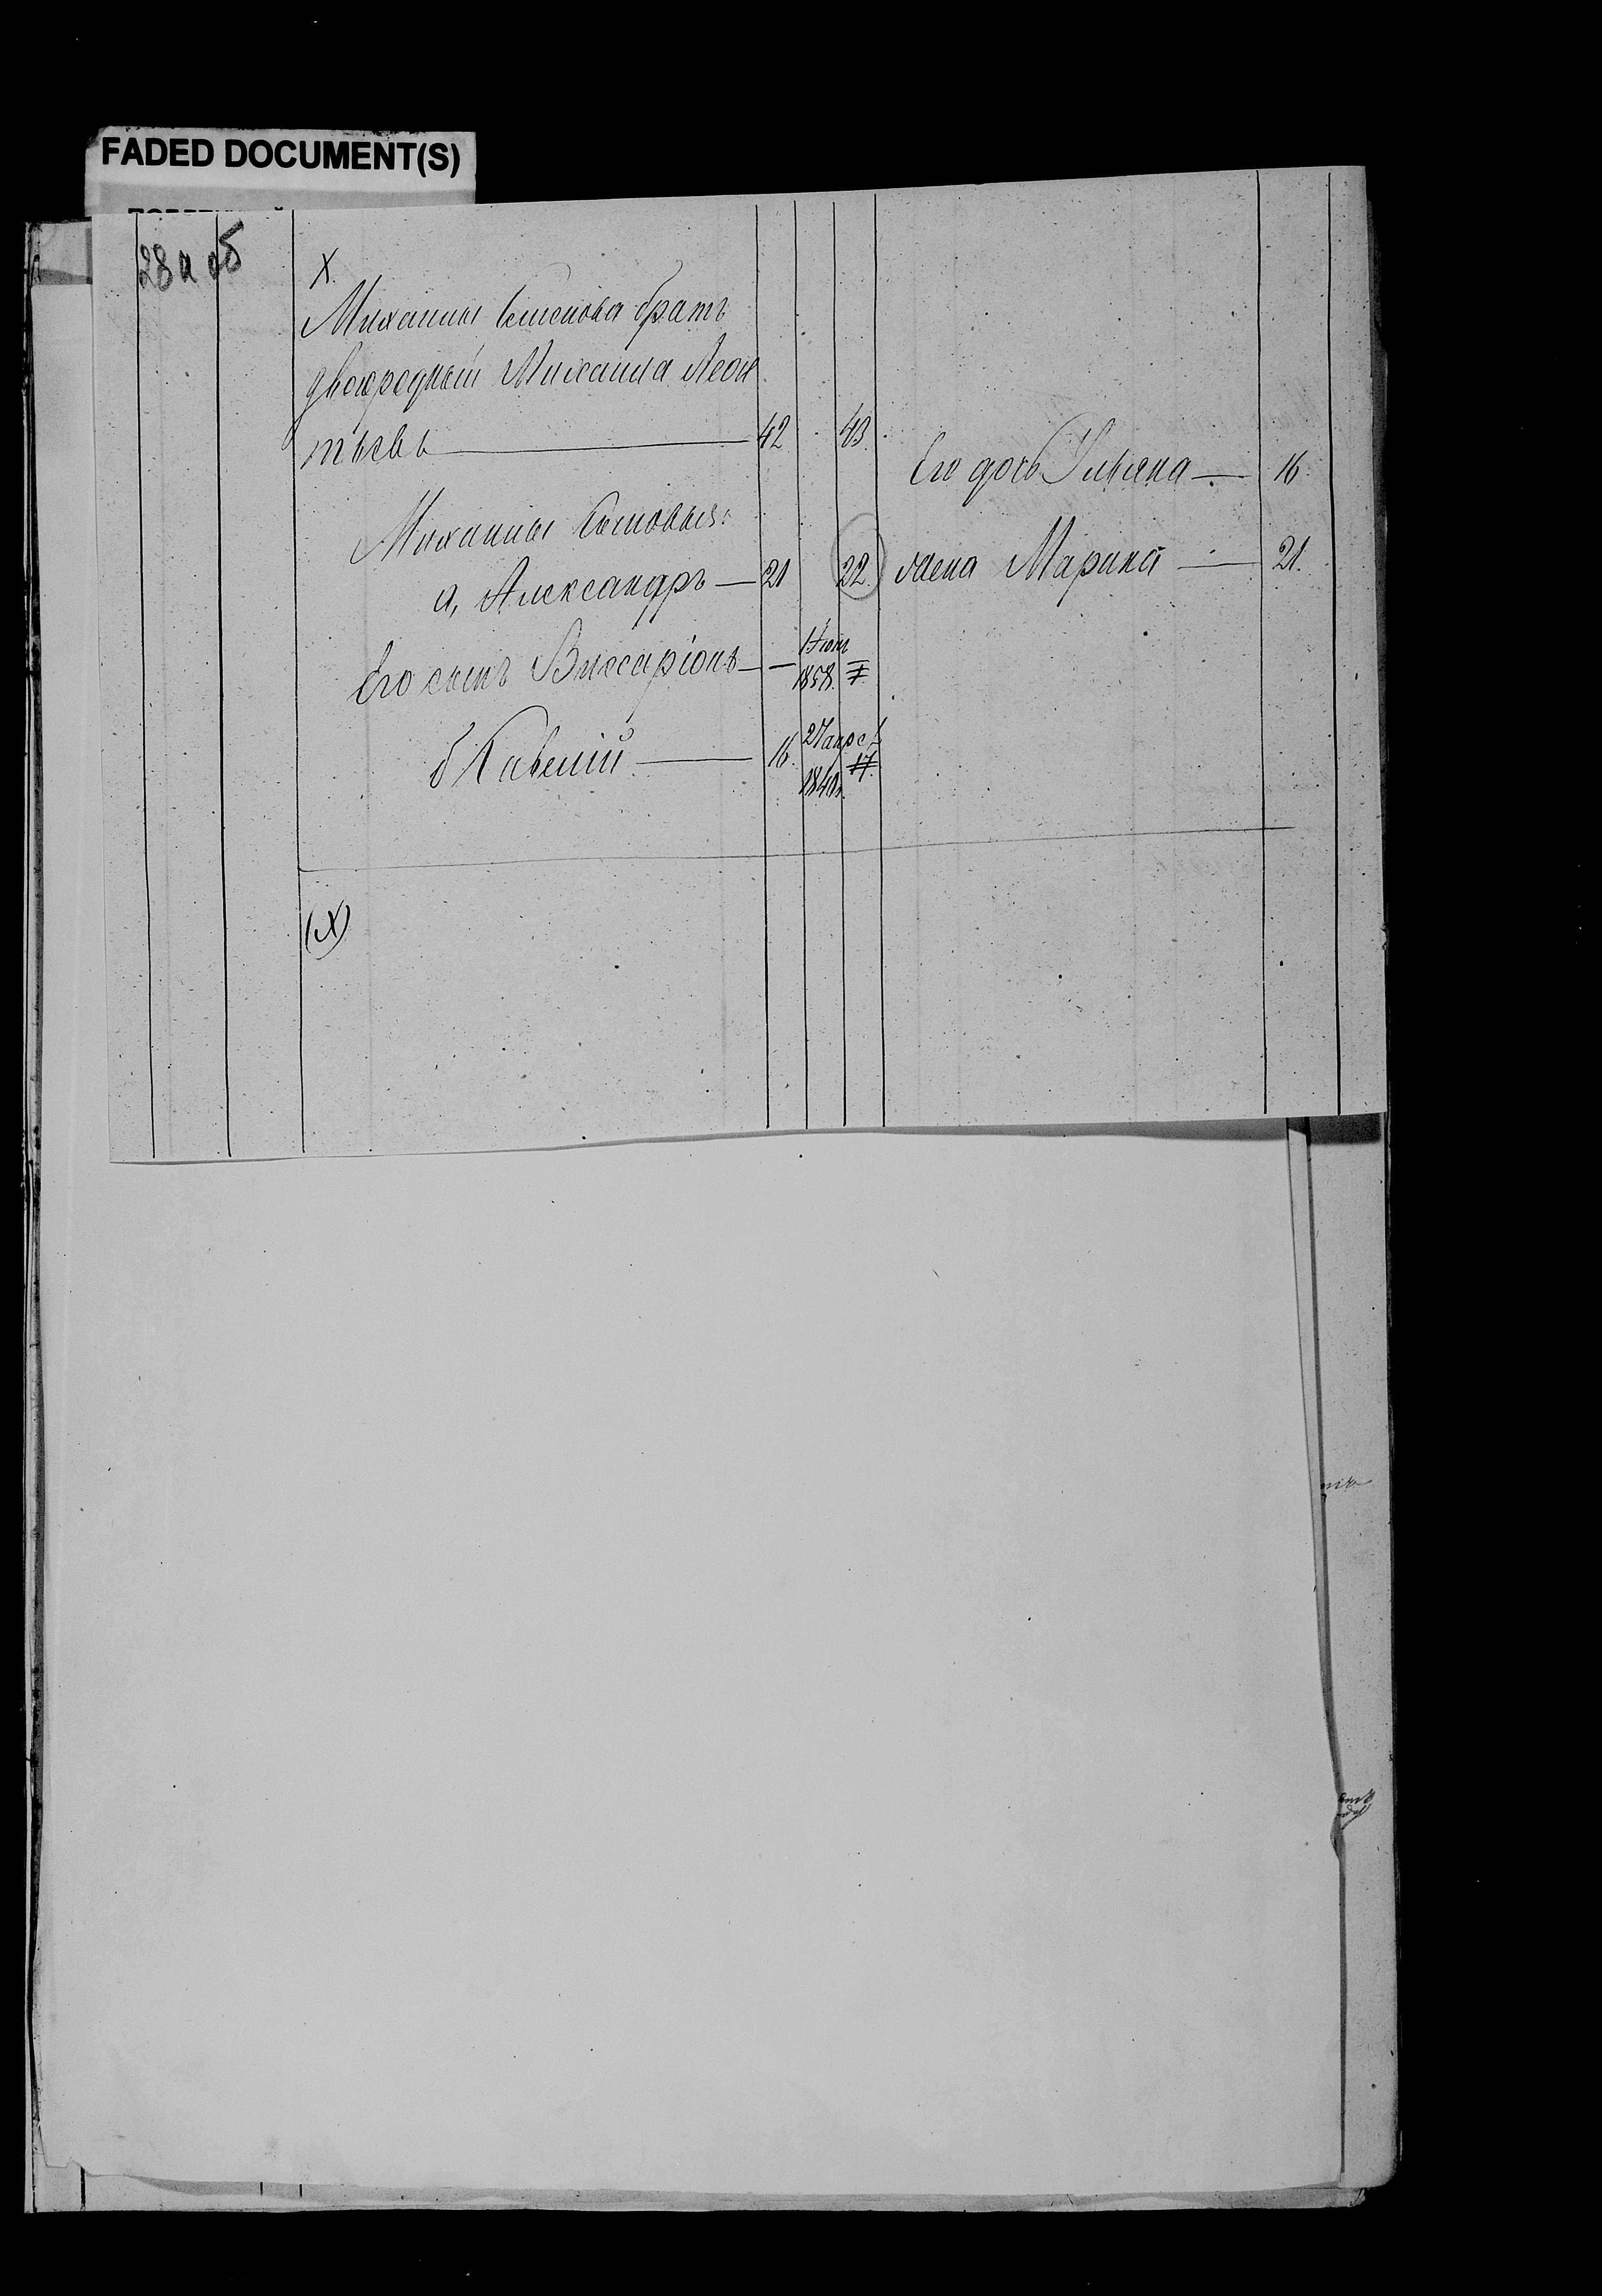 FADED DOCUMENT(S)
28 и об
X.
Михаилы Семенова братъ
двоюродный Михаила Леон
тьевъ 42 43.
Его дочь Ульяна 16.
Михаилы Сыновья:
а, Александръ 21 22. жена Марина 21.
Его сынъ Виссаріонъ — 1858.
б Савелій 16.
(X)